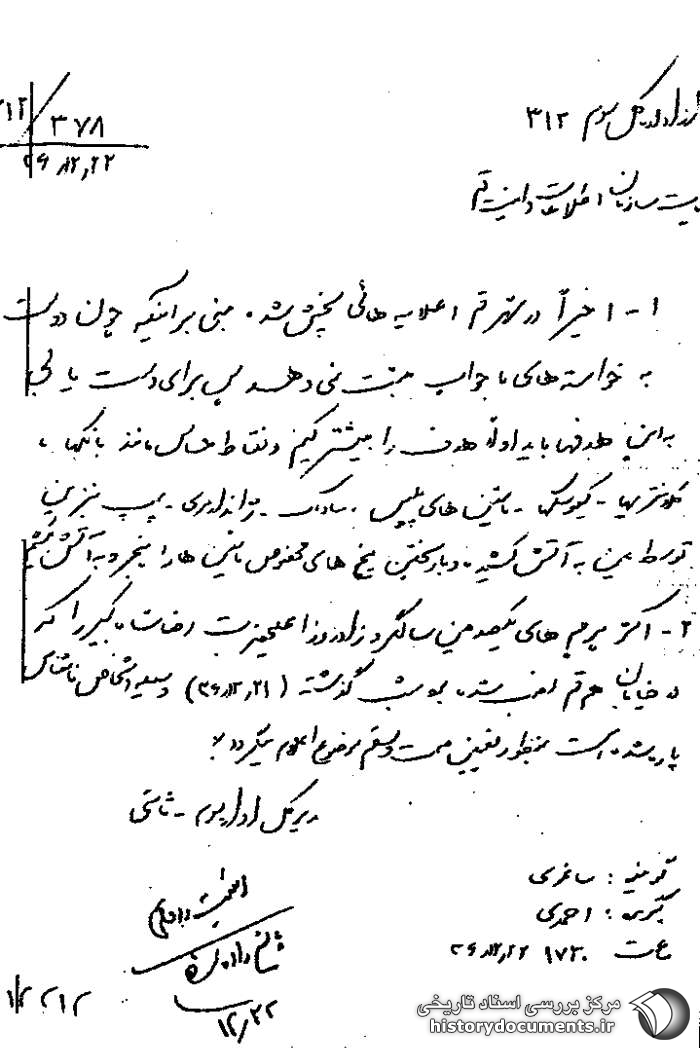 ۳۷۸
۳۶/۱۲/۲۲
از اداره کل سوم ۳۱۲
ریاست سازمان اطلاعات و امنیت قم
۱- اخیراً در شهر قم اعلامیه هائی پخش شده مبنی بر اینکه چون دولت
به خواسته های ما جواب مثبت نمی دهد پس برای دست یابی
به این هدفها باید اولاً هدف را بیشتر کنیم و نقاط حساس مانند بانکها ،
کلانتریها - کیوسکها - ماشین های پلیس ، ساواک - ژاندارمری - پمپ بنزین
توسط بمب به آتش کشیده و با ریختن میخ های مخصوص ماشین ها را پنچر و به آتش بکشیم
۲- اکثر پرچم های یکصدمین سالگرد زادروز اعلیحضرت رضاشاه کبیر را که
در خیابان های قم نصب شده بود شب گذشته (۳۶/۱۲/۲۱) وسیله اشخاص ناشناس
پاره شده است بمنظور تعیین صحت و سقم موضوع اعلام میگردد
مدیر کل اداره سوم - ثابتی
گوینده : ساغری
گیرنده : احمدی
ساعت ۱۷۳۰ ۳۶/۱۲/۲۲
۱۲/۲۲
۲۱۲
مرکز بررسی اسناد تاریخی
historydocuments.ir